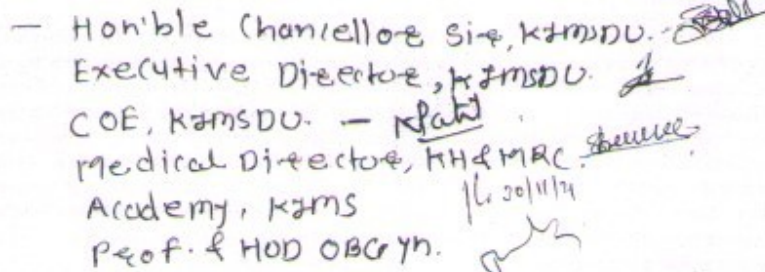 - Hon'ble Chancellor Sir, KIMSDU.
Executive Director, KIMSDU.
COE, KIMSDU. - KPatil
Medical Director, KH & MRC.
Academy, KIMS
30/11/21
Prof. & HOD OBGYn.